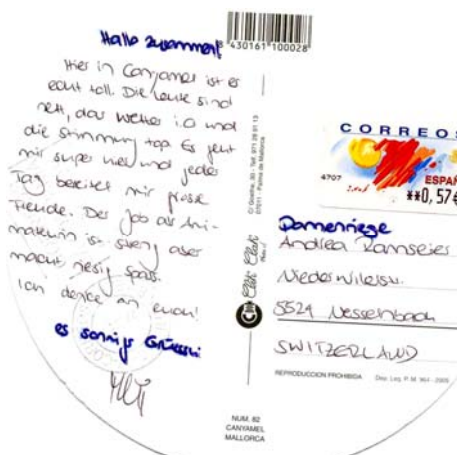 Hallo zusammen!
8 430161 100028
Hier in Canyamel ist es
echt toll. Die Leute sind
nett, das Wetter i.O und
die Stimmung top. Es
mir super und jeder
Tag bereitet mir grosse
Freude. Der Job als Ani-
materin ist streng aber
macht riesig Spass.
Ich denke an euch!
es sonnigs Grüessli
C/ Goethe, 30 - Tel. 971 28 91 13
07011 - Palma de Mallorca
Click Clack
NUM. 82
CANYAMEL
MALLORCA
CORREOS
4707
ESPAÑ
**0,57€
Damenriege
Andrea Ramseier
Niederwilerstr.
5524 Nesselnbach
SWITZERLAND
REPRODUCCION PROHIBIDA
Dep. Leg. P. M. 964 - 2005